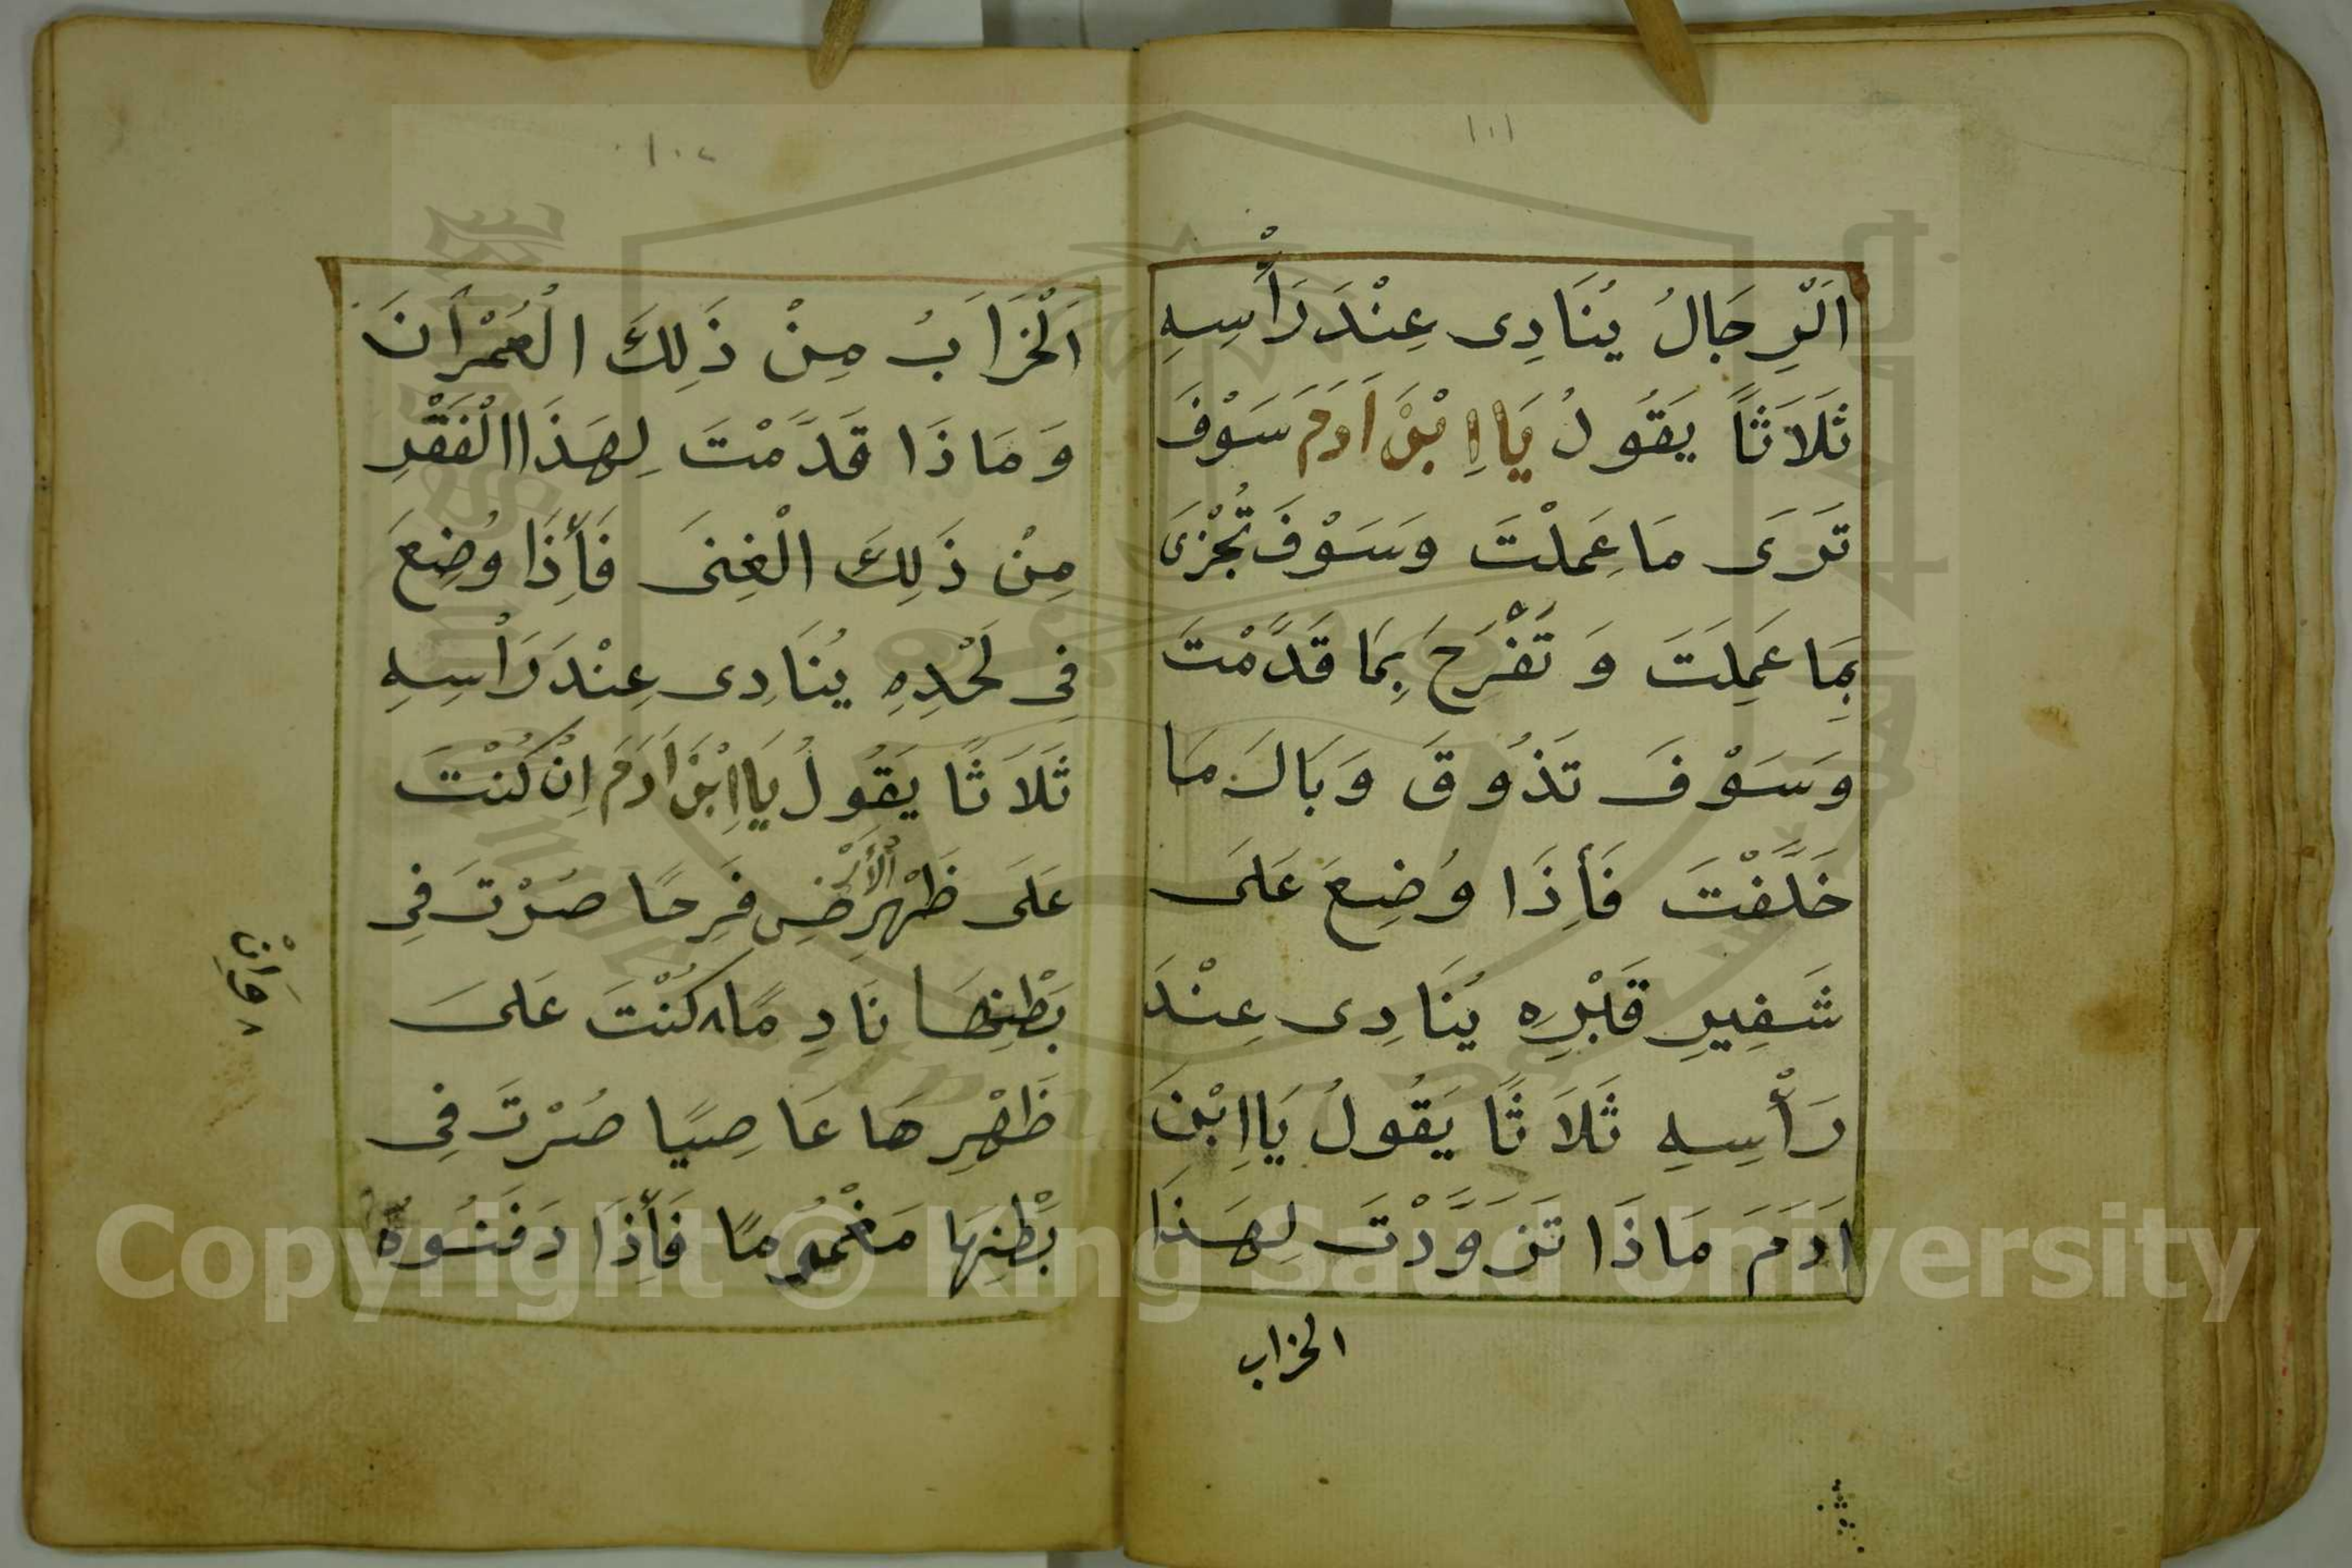 ١٠١
اَلرِّجَالُ يُنَادِى عِنْدَ رَأْسِهِ
ثَلَاثًا يَقُولُ يَا اِبْنَ اَدَمَ سَوْفَ
تَرَى مَا عَمِلْتَ وَسَوْفَ تُجْزَى
بِمَا عَمِلَتَ وَ تَفْرَحَ بِمَا قَدَّمْتَ
وَسَوْفَ تَذُوقَ وَبَالَ مَا
خَلَّفْتَ فَأِذَا وُضِعَ عَلَى
شَفِيرِ قَبْرِهِ يُنَادِى عِنْدَ
رَأْسِهِ ثَلَاثًا يَقُولُ يَا اِبْنَ
اَدَمَ مَاذَا تَزَوَّدْتَ لِهَذَا
الخراب
١٠٢
اَلْخَرَابُ مِنْ ذَلِكَ الْعُمْرَانَ
وَمَاذَا قَدَّمْتَ لِهَذَا الْفَقْرِ
مِنْ ذَلِكَ الْغِنَى فَأِذَا وُضِعَ
فِى لَحْدِهِ يُنَادِى عِنْدَ رَأْسِهِ
ثَلَاثًا يَقُولُ يَا اِبْنَ اَدَمَ اِنْ كُنْتَ
عَلَى ظَهْرِ الْأَرْضِ فَرِحًا صُرْتَ فِى
بَطْنِهَا نَادِمًا ٨ كُنْتَ عَلَى
٨ وَاِنْ
ظَهْرِهَا عَاصِيًا صُرْتَ فِى
بَطْنِهَا مَغْمُومًا فَأِذَا دَفَنُوهُ
Copyright © King Saud University